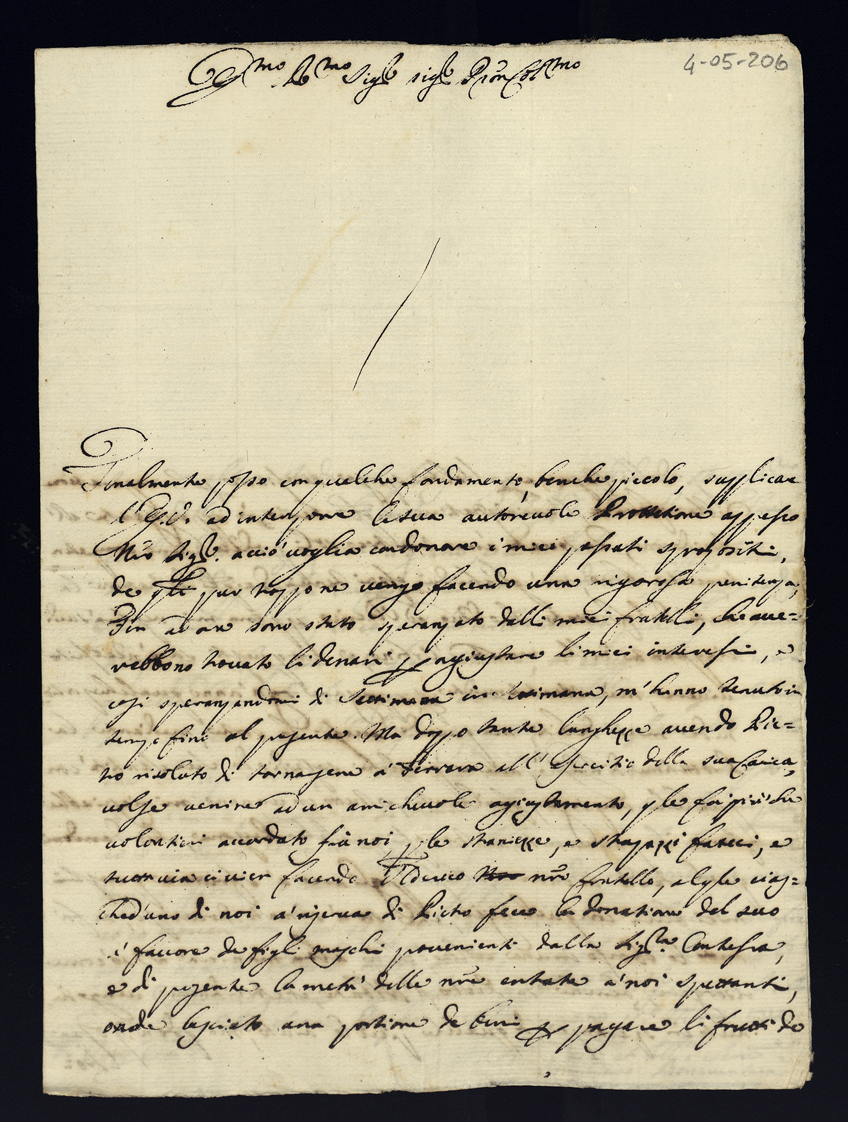 4-05-206
Sig.r sig.r Pron Col.mo
Finalmente posso con qualche fondamento, benche piccolo, supplicare
l'E.V. ad interporre la sua autorevole Protetione appesso
Nro Sig.r, acciò voglia condonare i miei passati spropositi,
de q.li pur troppo ne vengo facendo una rigorosa penitenza,
Fin ad ora sono stato speranzato dalli miei fratelli, che ave=
rebbono trovato li denari p agiustare li miei interessi, e
così speranzandomi di Settimana in settimana, m'hanno tenuto in
tempo fino al presente. Ma doppo tante lunghezze avendo Pie=
tro risoluto di tornasene à Ferrara all'esercitio della sua Carica,
volse venire ad un amichevole agiustamento, q.le fu più che
volontieri accordato frà noi, p le stanchezze, e strapazzi fatteci, e
tuttavia ci vien facendo Oderico nro fratello, al q.le ciasc=
hed'uno di noi à riserva di Pietro fece la donatione del suo
à favore de figli maschi provenienti dalla Sig.ra Contessa,
e di presente la metà delle nre entrate à noi spettanti,
onde lasciato una portione de beni p pagare li frutti de